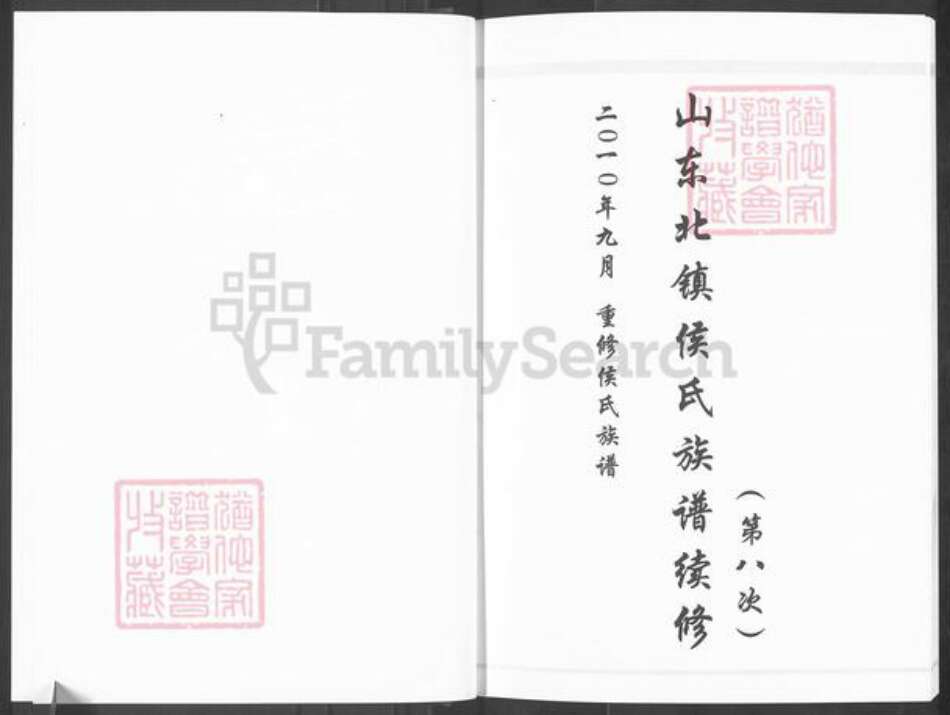 山东北镇侯氏族谱续修
(第八次)
二〇一〇年九月 重修侯氏族谱
FamilySearch
猶他家
譜學會
收藏
猶他家
譜學會
收藏